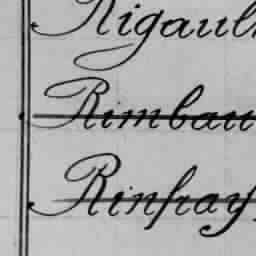 Rigaul
Rimbau
Rinfray